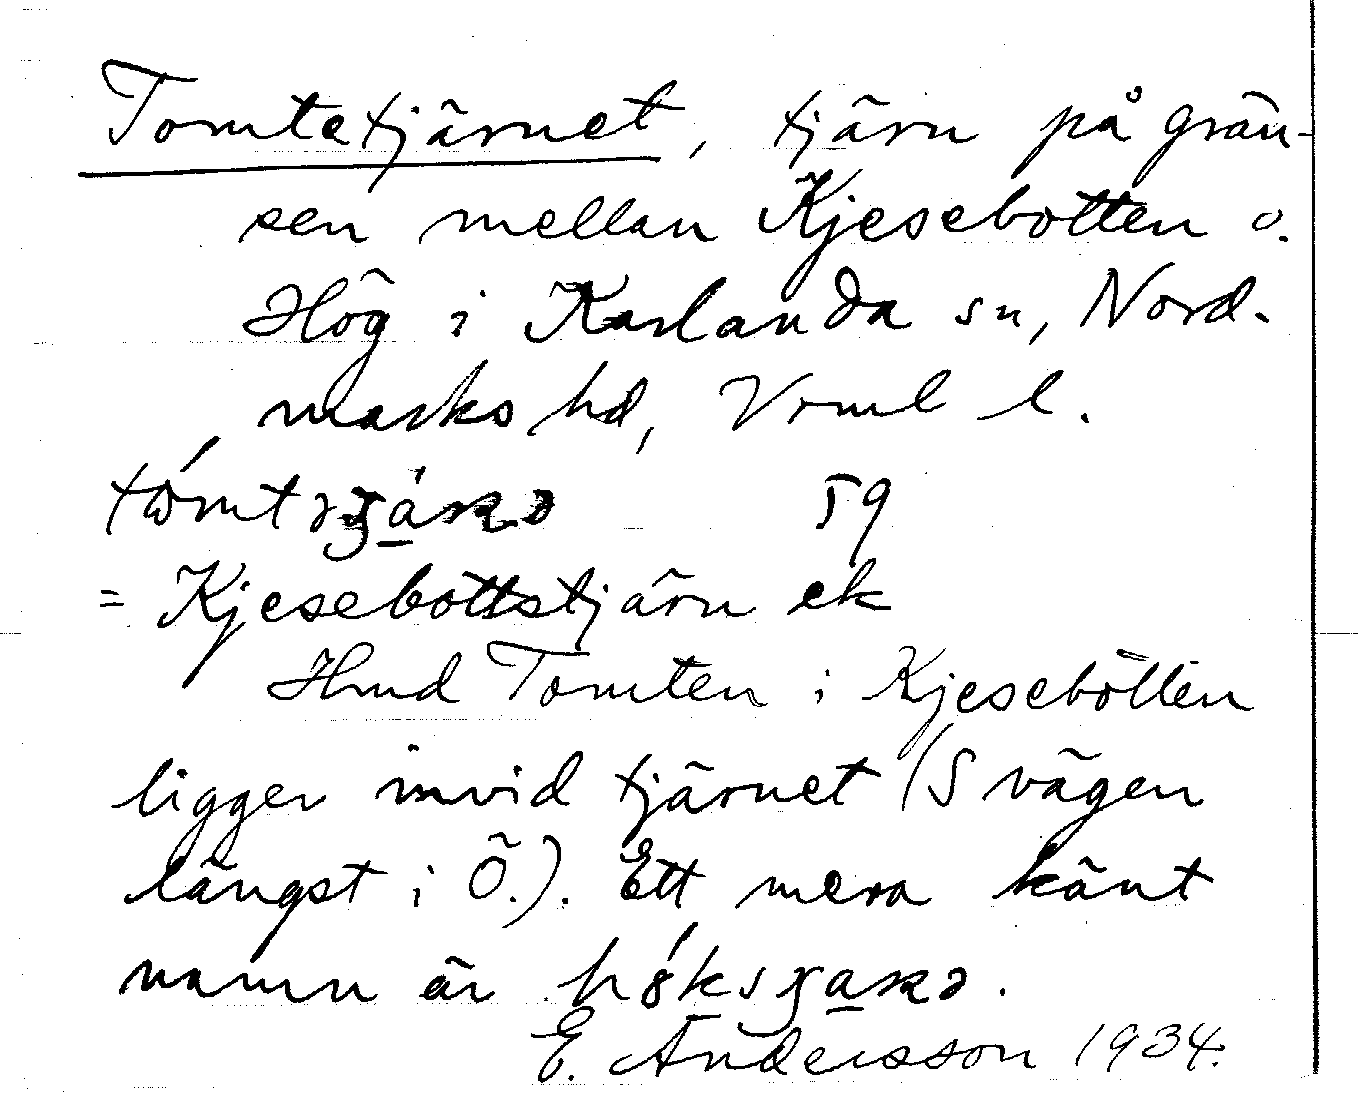 Tomtetjärnet, tjärn på grän-
sen mellan Kjesebotten o.
Hög i Karlanda sn, Nord-
marks hd, Vrml l.
59
= Kjesebottstjärn ek
Hmd Tomten i Kjesebötten
ligger invid tjärnet (S vägen
längst i Ö.). Ett mera känt
namn är
E. Andersson 1934.